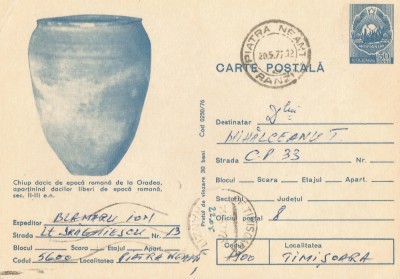 PIATRA NEAMT
20.5.77.12
CARTE POȘTALĂ
ROMANIA
Chiup dacic de epocă romană de la Oradea,
aparținînd dacilor liberi de epocă romană,
sec. II-III e.n.
Expeditor BLANARU ION
Strada Nr. 13
Blocul Scara Etajul Apart.
Codul 5600 Localitatea PIATRA NEAMȚ
Cod 0250/76
Prețul de vînzare 30 bani
Destinatar
MIHĂLCEANU T
Strada C.P 33 Nr.
Blocul Scara Etajul Apart.
Sectorul Județul
Oficiul poștal 8
Codul Localitatea
1900 TIMIȘOARA